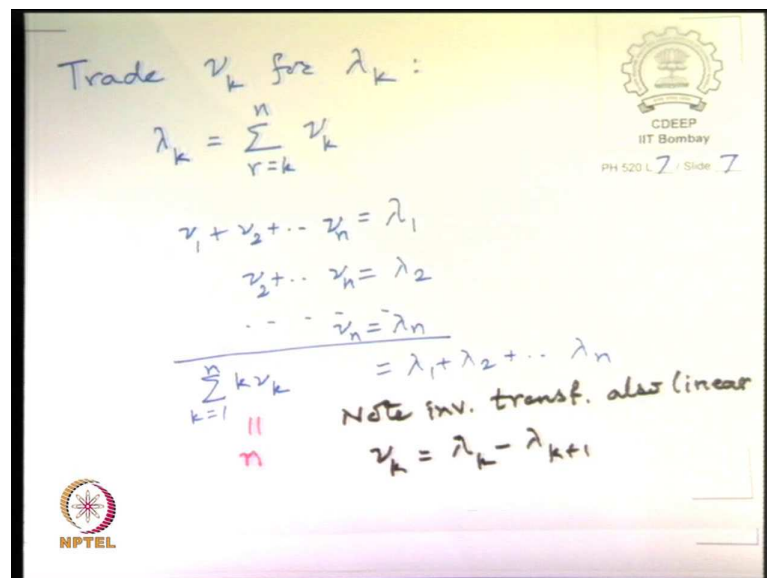 Trade ν_k for λ_k :
CDEEP
IIT Bombay
PH 520 L 7 / Slide 7
λ_k = Σ_{r=k}^{n} ν_k
ν_1 + ν_2 + ·· ν_n = λ_1
ν_2 + ·· ν_n = λ_2
· · · ν_n = λ_n
Σ_{k=1}^{n} k ν_k = λ_1 + λ_2 + ·· λ_n
|| Note inv. transf. also linear
n ν_k = λ_k - λ_{k+1}
NPTEL